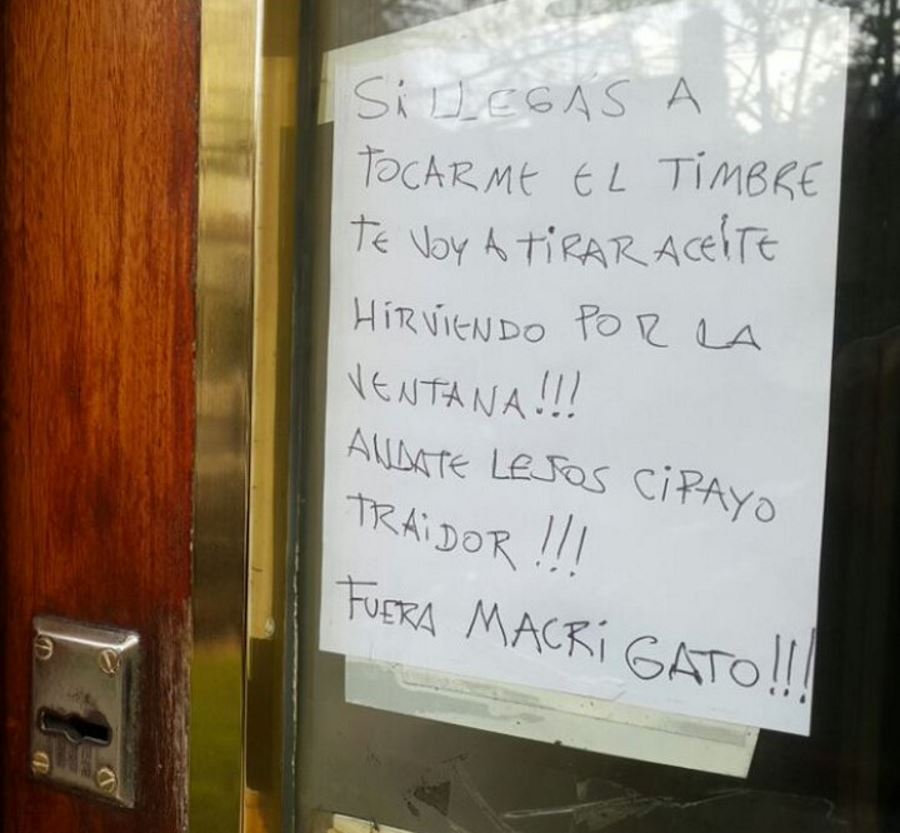 Si LLEGÁS A
TOCARME EL TiMBRE
TE VOY A TiRAR ACEiTE
HiRViENDO POR LA
VENTANA!!!
ANDATE LEJOS CiPAYO
TRAiDOR!!!
FUERA MACRi GATO!!!